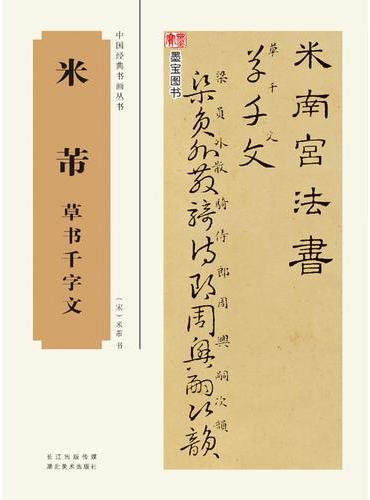 中国经典书画丛书
米芾
草书千字文
（宋）米芾 书
长江出版传媒
湖北美术出版社
墨宝
墨宝图书
米南宫法書
草千文
草千文
梁員外散騎侍郎周興嗣次韻
梁員外散騎侍郎周興嗣次韻